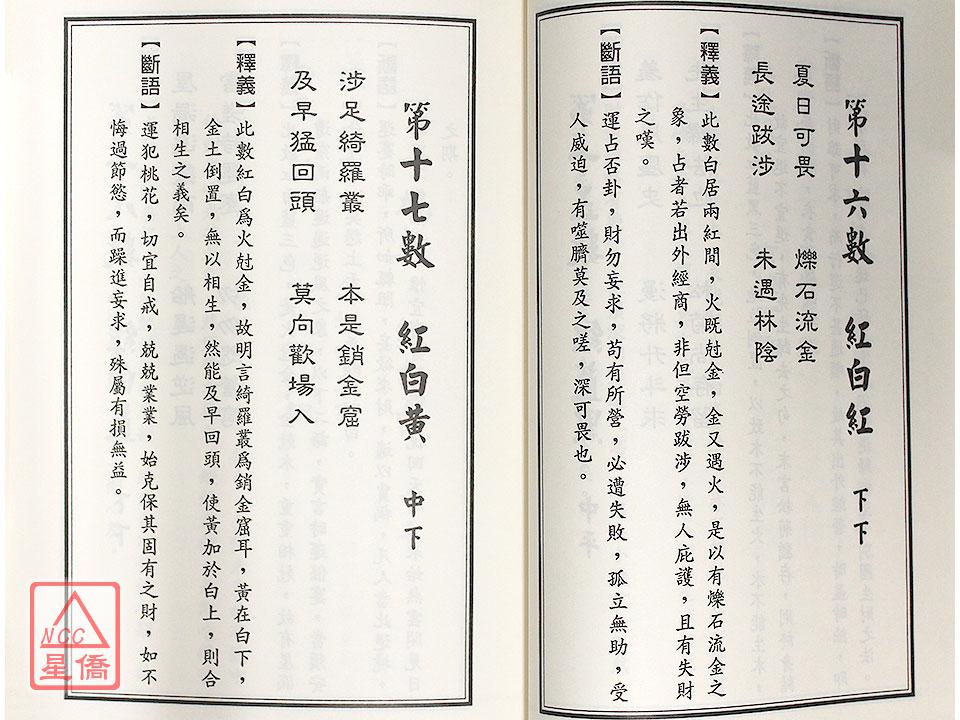 第十六數　紅白紅　下下
夏日可畏　爍石流金
長途跋涉　未遇林陰
【釋義】此數白居兩紅間，火既尅金，金又遇火，是以有爍石流金之
象，占者若出外經商，非但空勞跋涉，無人庇護，且有失財
之嘆。
【斷語】運占否卦，財勿妄求，苟有所營，必遭失敗，孤立無助，受
人威迫，有噬臍莫及之嗟，深可畏也。
第十七數　紅白黃　中下
涉足綺羅叢　本是銷金窟
及早猛回頭　莫向歡場入
【釋義】此數紅白爲火尅金，故明言綺羅叢爲銷金窟耳，黃在白下，
金土倒置，無以相生，然能及早回頭，使黃加於白上，則合
相生之義矣。
【斷語】運犯桃花，切宜自戒，兢兢業業，始克保其固有之財，如不
悔過節慾，而躁進妄求，殊屬有損無益。
NCC
星僑